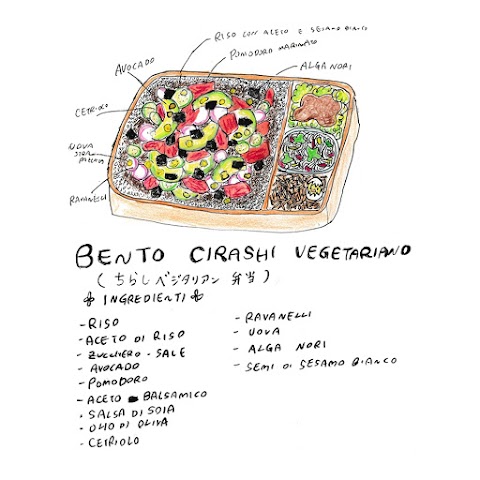 RISO CON ACETO E SESAMO BIANCO
POMODORO MARINATO
AVOCADO
ALGA NORI
CETRIOLO
UOVA
SODA
RAVANELLI
BENTO CIRASHI VEGETARIANO
(ちらしベジタリアン 弁当)
INGREDIENTI
- RISO
- ACETO DI RISO
- ZUCCHERO - SALE
- AVOCADO
- POMODORO
- ACETO BALSAMICO
- SALSA DI SOIA
- OLIO DI OLIVA
- CETRIOLO
- RAVANELLI
- UOVA
- ALGA NORI
- SEMI DI SESAMO BIANCO